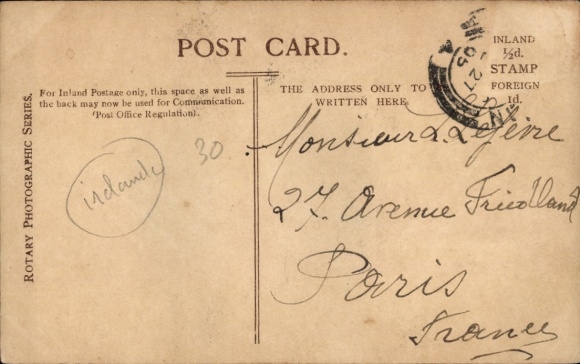 POST CARD.
INLAND
½d.
STAMP
FOREIGN
1d.
For Inland Postage only, this space as well as
the back may now be used for Communication.
(Post Office Regulation).
THE ADDRESS ONLY TO BE
WRITTEN HERE
ROTARY PHOTOGRAPHIC SERIES.
irlande
30
Monsieur L. Lefèvre
27. Avenue Friedland
Paris
France